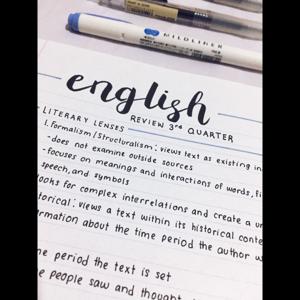 MILDLINER
english
REVIEW 3rd QUARTER
- LITERARY LENSES -
1. Formalism/Structuralism: views text as existing in
- does not examine outside sources
- focuses on meanings and interactions of words,
speech, and symbols
looks for complex interrelations and create a
torical: views a text within its historical
rmation about the time period the author
me period the text is set
e people saw and thought